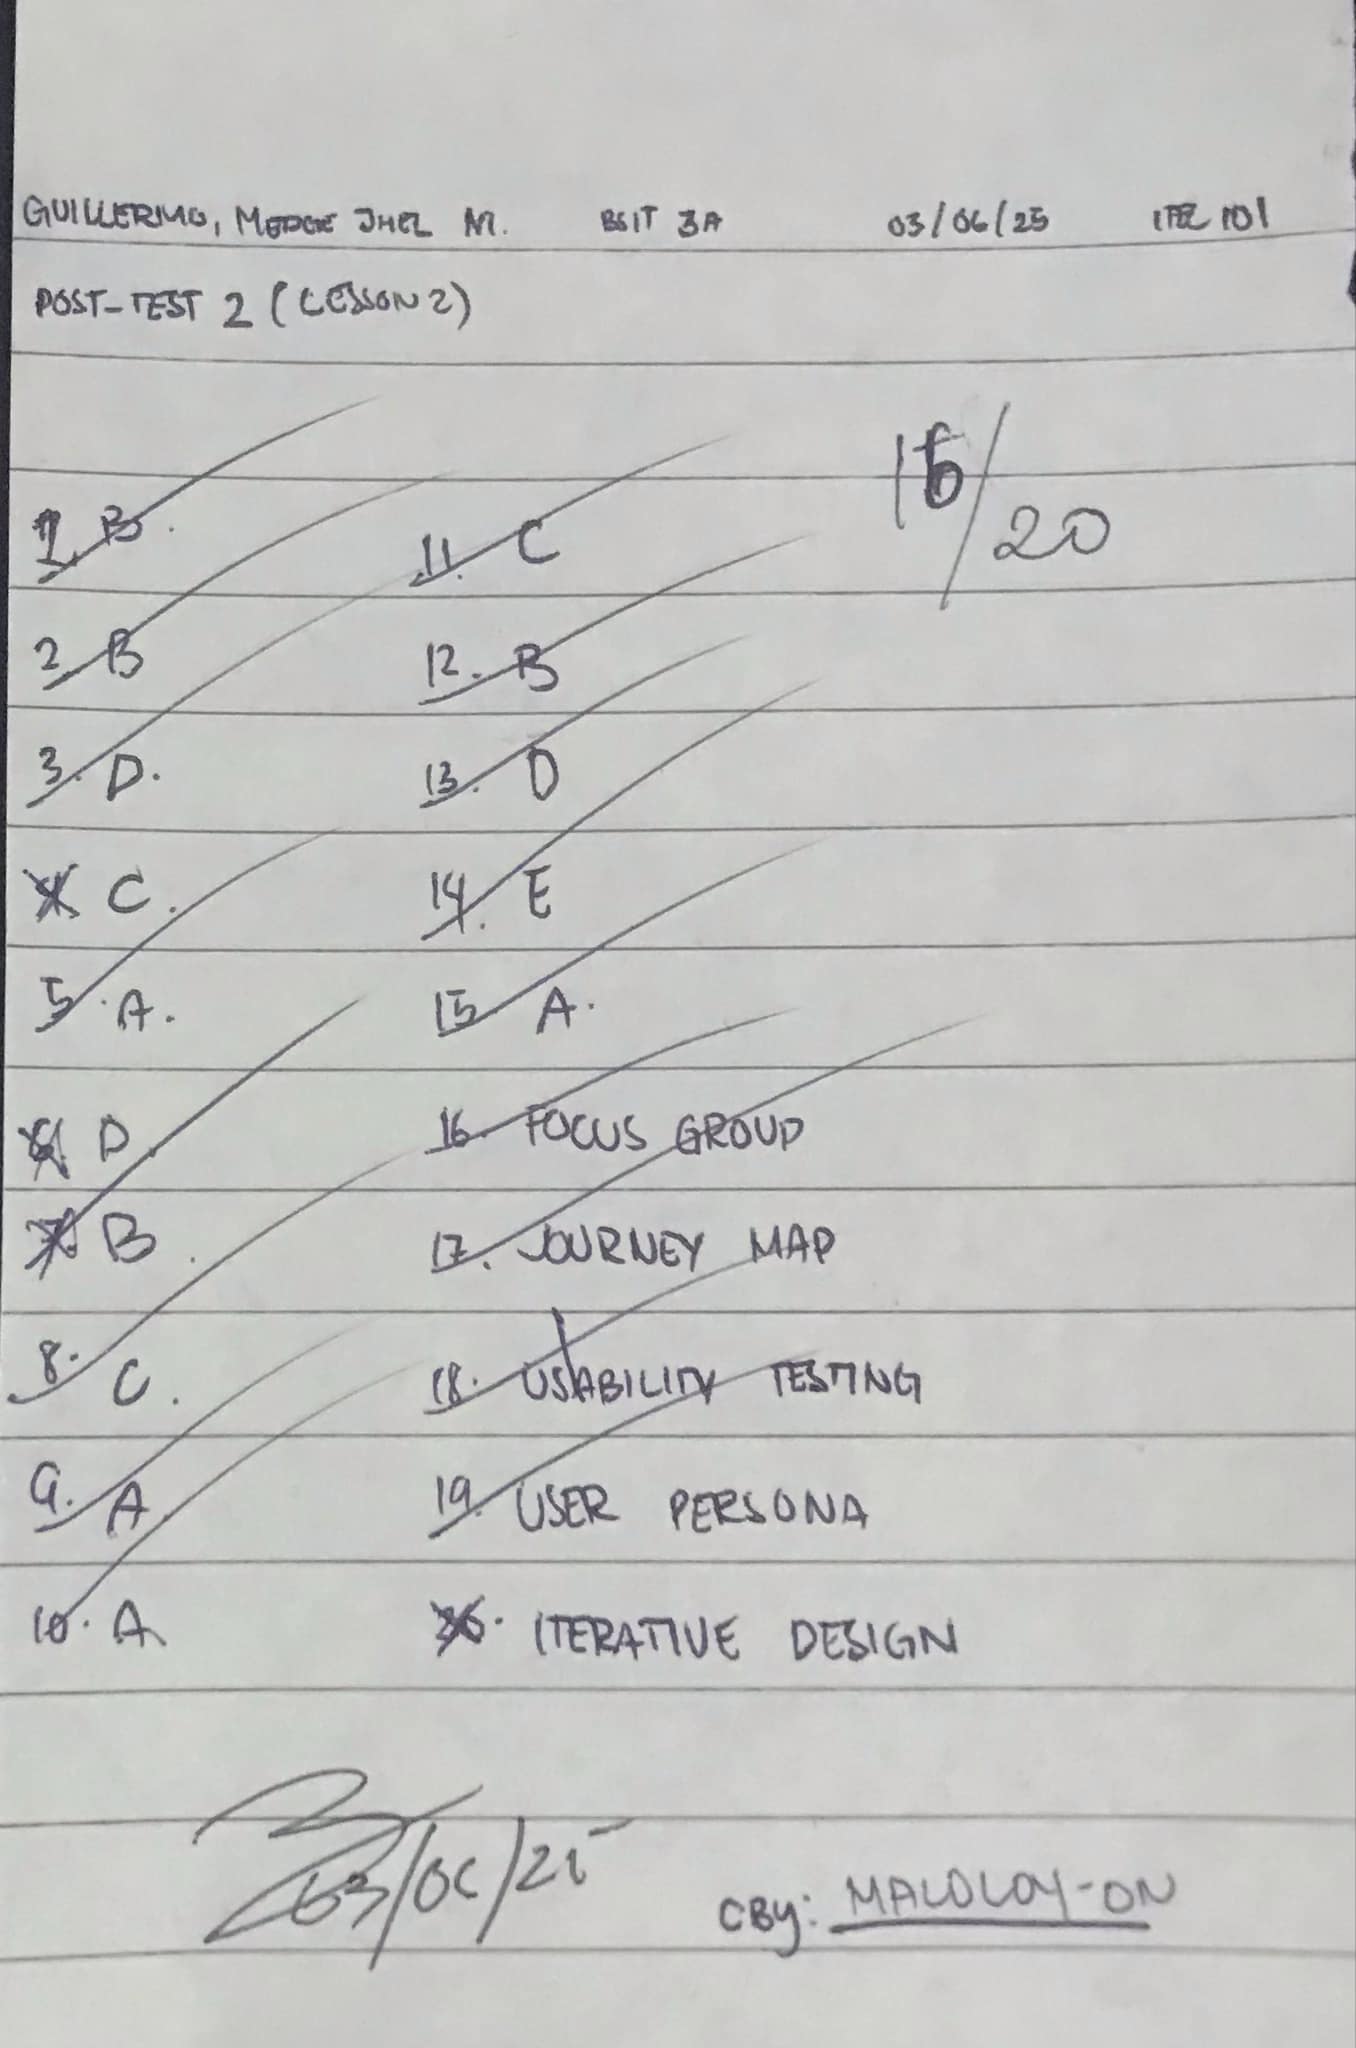 GUILLERMO, MEDGE JHEL M. BSIT 3A 03/06/25 ITEL 101
POST-TEST 2 (LESSON 2)
16/20
1. B.
2. B
3. D.
4. C.
5. A.
6. D.
7. B.
8. C.
9. A.
10. A
11. C
12. B
13. D
14. E
15. A.
16. FOCUS GROUP
17. JOURNEY MAP
18. USABILITY TESTING
19. USER PERSONA
20. ITERATIVE DESIGN
03/06/25
CBY: MALOLOY-ON